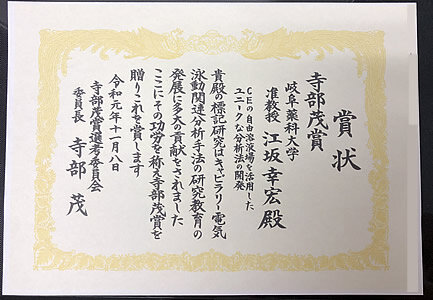 賞状
寺部茂賞
岐阜薬科大学
准教授 江坂幸宏殿
CEの自由溶液場を活用した
ユニークな分析法の開発
貴殿の標記研究はキャピラリー電気
泳動関連分析手法の研究教育の
発展に多大の貢献をされました
ここにその功労を称え寺部茂賞を
贈りこれを賞します
令和元年十一月八日
寺部茂賞選考委員会
委員長 寺部 茂